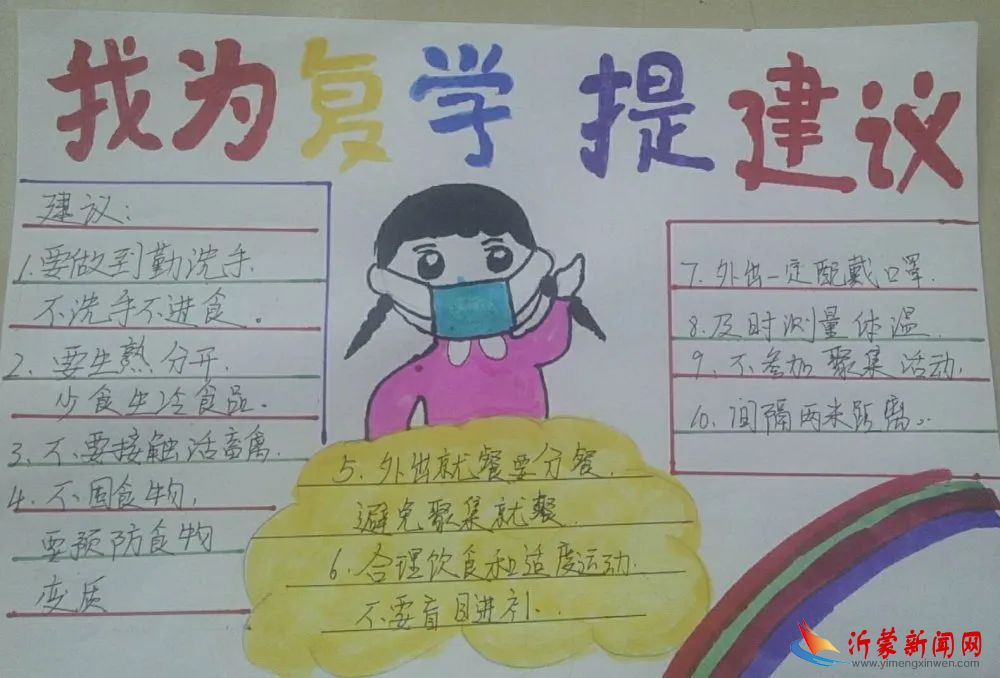 我为复学 提建议
建议：
1.要做到勤洗手
不洗手不进食。
2、要生熟分开.
少食生冷食品.
3、不要接触活畜禽.
4、不囤食物,
要预防食物
变质
5、外出就餐要分餐.
避免聚集就餐.
6、合理饮食和适度运动.
不要盲目进补.
7、外出一定配戴口罩.
8、及时测量体温
9、不参加聚集活动.
10、间隔两米距离..
沂蒙新闻网
www.yimengxinwen.com